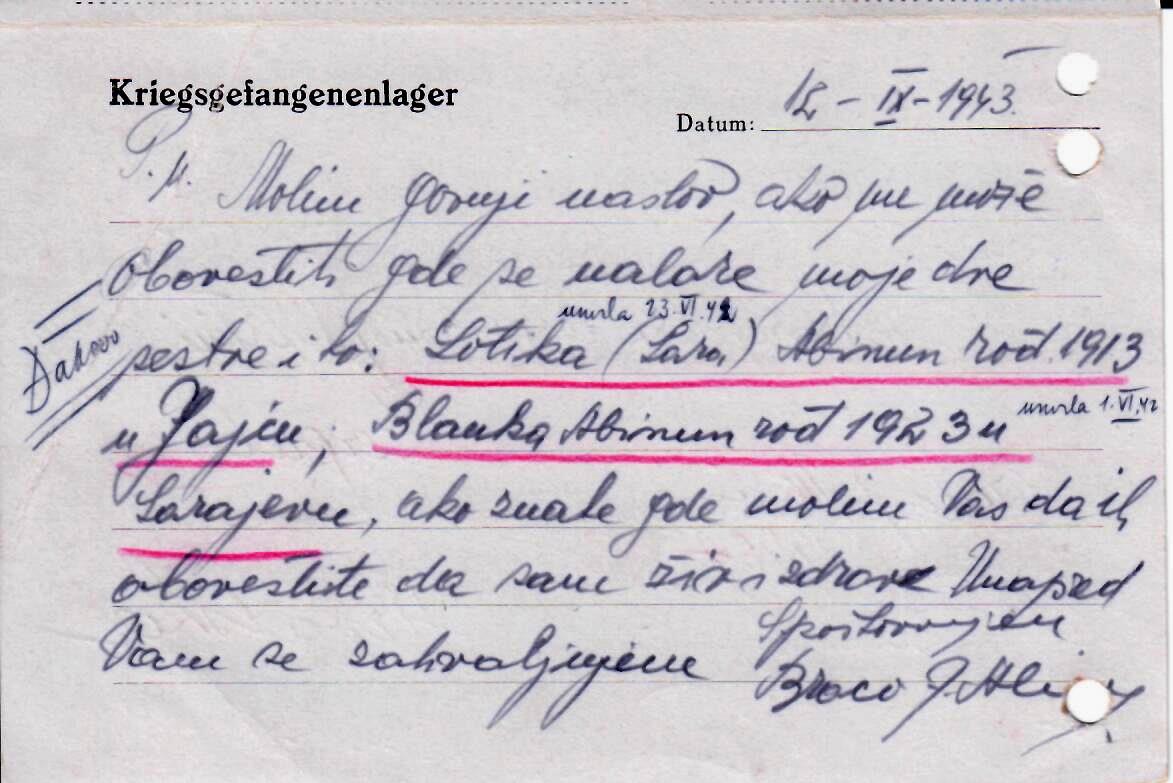 Kriegsgefangenenlager
Datum: 12 - IX - 1943.
P. n. Molim gornji naslov, ako mi može
obovestiti gde se nalaze moje dve
umrla 23.VI.42
sestre i to: Lotika (Sara) Abinun rođ. 1913
Đakovo
umrla 1.VI.42
u Jajcu, Blanka Abinun rođ 1923 u
Sarajevu, ako znate gde molim Vas da ih
obovestite da sam živ i zdrav Unapred
Vam se zahvaljujem
Spoštovanjem
Braco J.